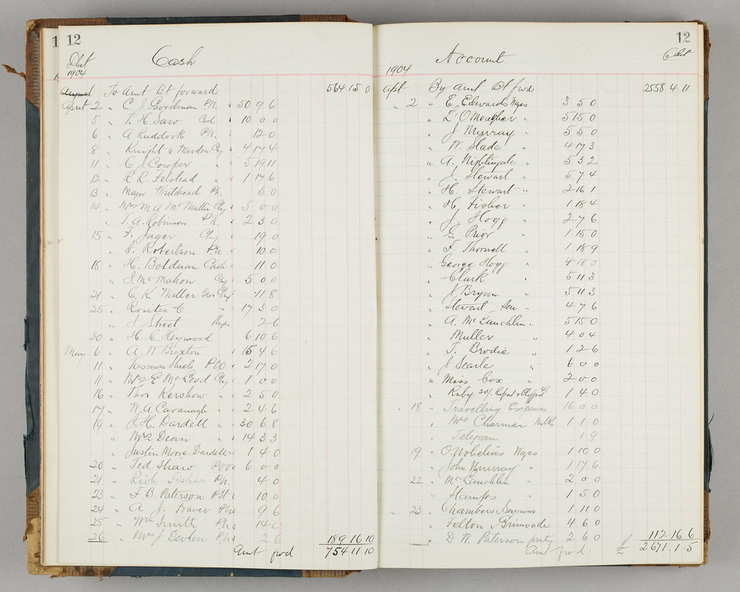 12
Cash
1904
To Amt Bt forward 564 15 0
April 2 " C. J. Goodman Ph. " 50 9 6
5 " 10 0 0
6 " A Ruddock Ph. " 12 0
8 " Knight & 4 17 4
11 " C J Cowper " 5 19 11
12 " R R Felstead " 1 17 6
13 " Major Ph.
14 " Mrs M A McMullin 5 0 0
" J. A. Robinson Ph. 2 3 0
15 " F. Jager 19 0
" Robertson Ph. 10 0
18 " H. Boldman Cash 11 0
" J. McMahon 5 0 0
21 " C. K. Waller 11 8
25 " Router C " 17 3 0
" J Street 2 6
30 " H. C. Heywood 6 10 6
May 6 " A. W. Buxton 15 4 6
11 " 2 17 0
11 " Mrs E McLeod 1 0 0
16 " Thos Kershow " 2 5 0
17 " W. A. Cavanagh " 2 4 6
19 " J. H. Dardell " 30 6 8
" Mrs Dean " 14 3 3
" Justin Moore Dardell " 1 4 0
20 " Ted Shaw 6 0 0
21 " Rich Fisher Ph. 4 0
23 " F. B. Paterson 10 0
24 " A. J. Fraser Phs 9 6
25 " Phs 14 0
26 " Devlin Phs 2 6 189 16 10
Amt fwd 754 11 10
12
Account
1904
Apl By Amt Bt fwd 2558 4 11
" 2 " E. Edwards Wges 3 5 0
" O'Meagher " 5 15 0
" J. Murray " 5 5 0
" W. Slade " 4 17 3
" A. Nightingale " 5 3 2
" J. Stewart " 5 7 4
" H. Stewart " 2 16 1
" H. Fisher " 1 18 4
" J. Hogg " 2 7 6
" G. Prior " 1 15 0
" F. Thornell " 1 18 9
" George Hogg " 4 18 0
" Clark " 5 11 3
" J Bryan " 5 11 3
" Stewart, " 4 7 6
" A. McLauchlin " 5 15 0
" Muller " 4 0 4
" T. Brodie " 1 2 6
" J Searle " 6 0 0
" Miss Cox " 2 0 0
" Ruby 1 4 0
" 18 " Travelling Expenses 16 0 0
" Mrs Charman Milk 1 1 0
" Telegram 1 9
19 " O'Nobelius Wges 1 10 0
" John Murray " 1 17 6
22 " McLauchlin " 2 0 0
" Stamps " 1 5 0
" 23 " Chambers & Seymour 1 11 0
" Felton & Grimwade 4 6 0
" D. W. Paterson 2 6 0 112 16 6
Amt fwd. £ 2671. 1. 5